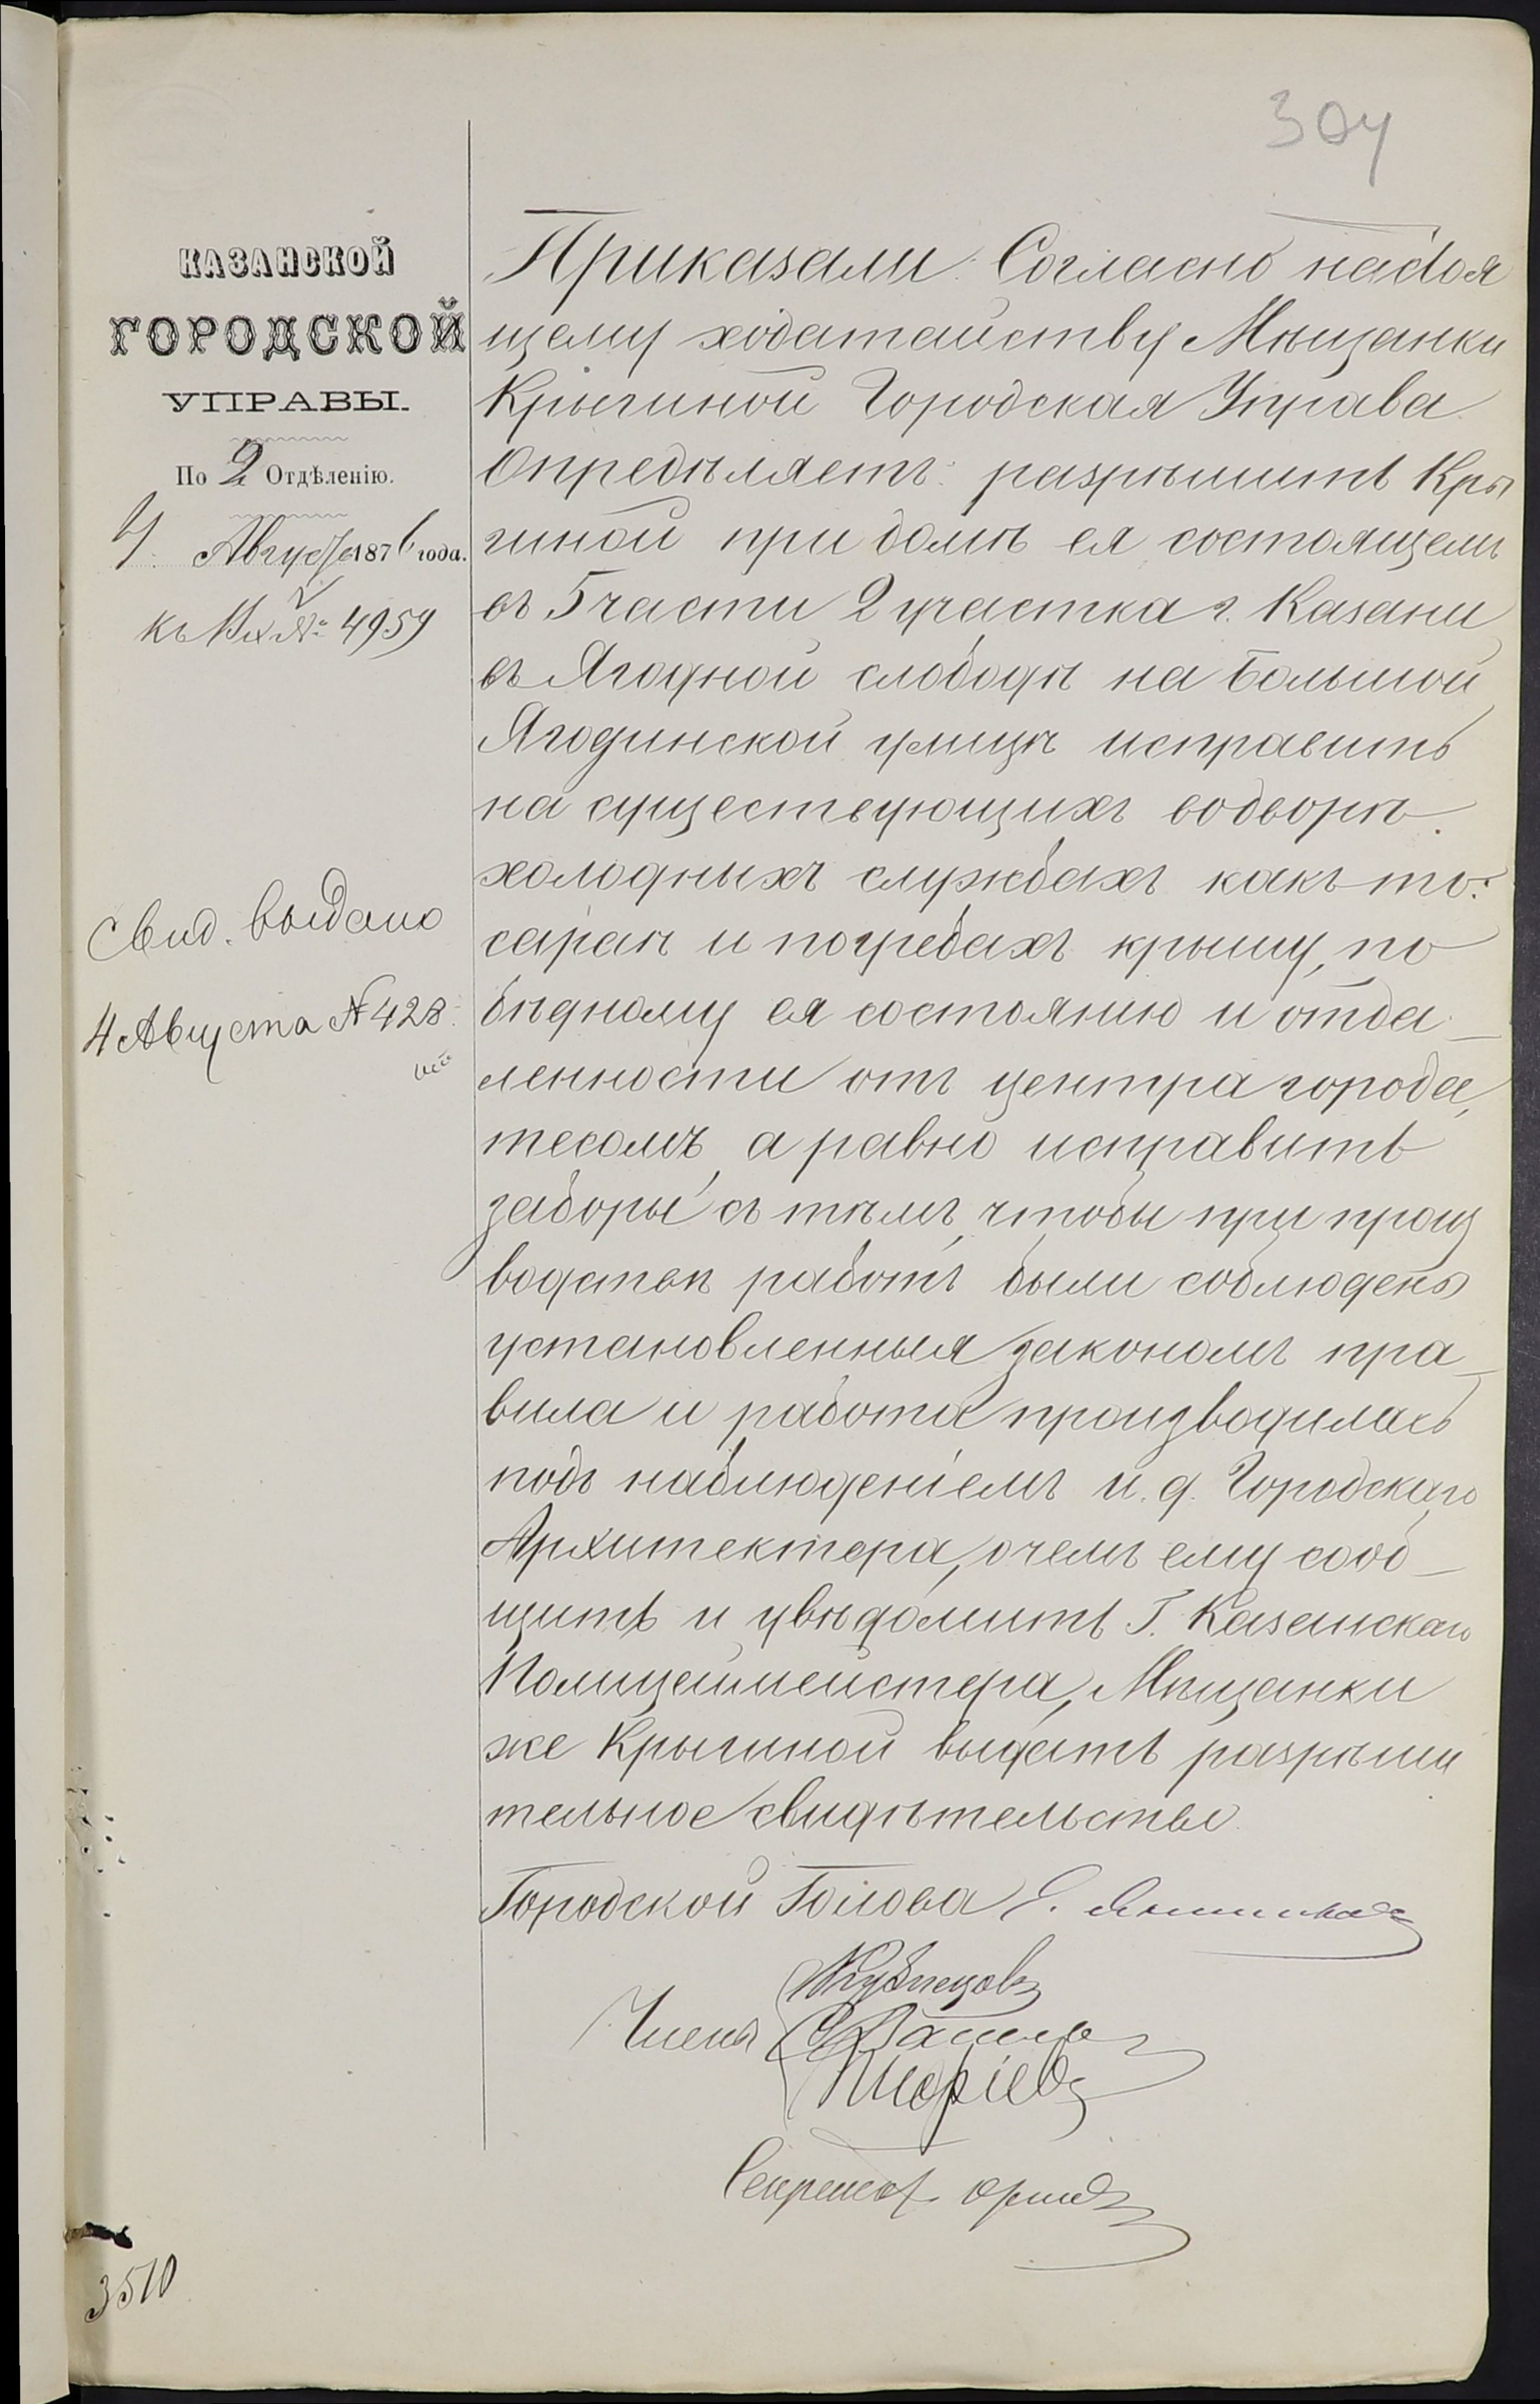 304
КАЗАНСКОЙ
ГОРОДСКОЙ
УПРАВЫ.
По 2 Отдѣленію.
4 Августа 1876 года.
къ Вх № 4959
Свид. выдано
4 Августа № 428
Приказали: Согласно настоя
щему ходатайству Мѣщанки
Крыгиной Городская Управа
Опредѣляетъ: разрѣшить Кры
гиной при домѣ ея состоящемъ
въ 5 части 2 участка г. Казани
въ Ягодной слободѣ на Большой
Ягодинской улицѣ исправить
на существующихъ водворѣ
холодныхъ службахъ какъ то:
сараѣ и погребахъ крышу, по
бѣдному ея состоянию и отда-
ленности отъ центра города,
тесомъ, а равно исправить
заборы съ тѣмъ, чтобы при произ
водствѣ работъ были соблюдены
установленныя закономъ пра-
вила и работа производилась
подъ наблюденіемъ и. д. Городскаго
Архитектера, очемъ ему сооб-
щить и увѣдомить Г. Казанскаго
Полицеймейстера, Мѣщанки
же Крыгиной выдать разрѣши
тельное свидѣтельство.
Городской Голова Е.
Члены Кузнецовъ
Секретарь
3510